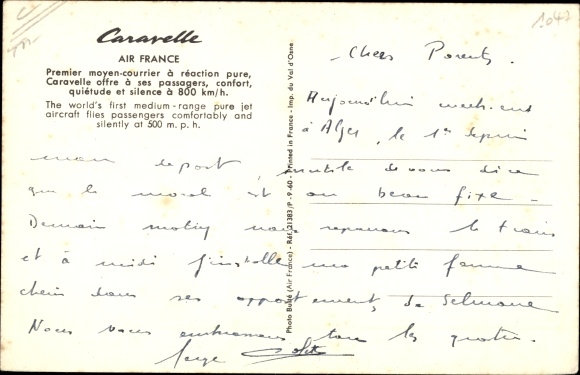 1.047
Caravelle
AIR FRANCE
Premier moyen-courrier à réaction pure,
Caravelle offre à ses passagers, confort,
quiétude et silence à 800 km/h.
The world's first medium-range pure jet
aircraft flies passengers comfortably and
silently at 500 m. p. h.
Photo Bubé (Air France) - Réf. 21383/P - 9-60 - Printed in France - Imp. du Val d'Osne
Chers Parents.
Aujourd'hui week-end
à Alger, le 1er depuis
mon départ, inutile de vous dire
que le moral est au beau fixe -
Demain matin nous reprenons le train
et à midi j'installe ma petite femme
chérie dans ses appartements, de
Nous vous embrassons tous les quatre.
Serge